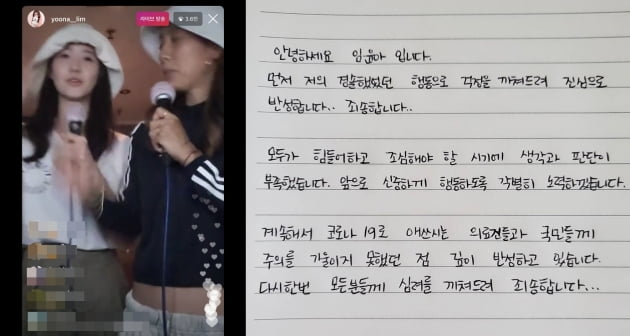 yoona__lim
라이브 방송
3.6만
안녕하세요 임윤아 입니다.
먼저 저의 경솔했었던 행동으로 걱정을 끼쳐드려 진심으로
반성합니다.. 죄송합니다..
모두가 힘들어하고 조심해야 할 시기에 생각과 판단이
부족했습니다. 앞으로 신중하게 행동하도록 각별히 노력하겠습니다.
계속해서 코로나 19로 애쓰시는 의료진들과 국민들께
주의를 기울이지 못했던 점 깊이 반성하고 있습니다.
다시한번 모든분들께 심려를 끼쳐드려 죄송합니다...